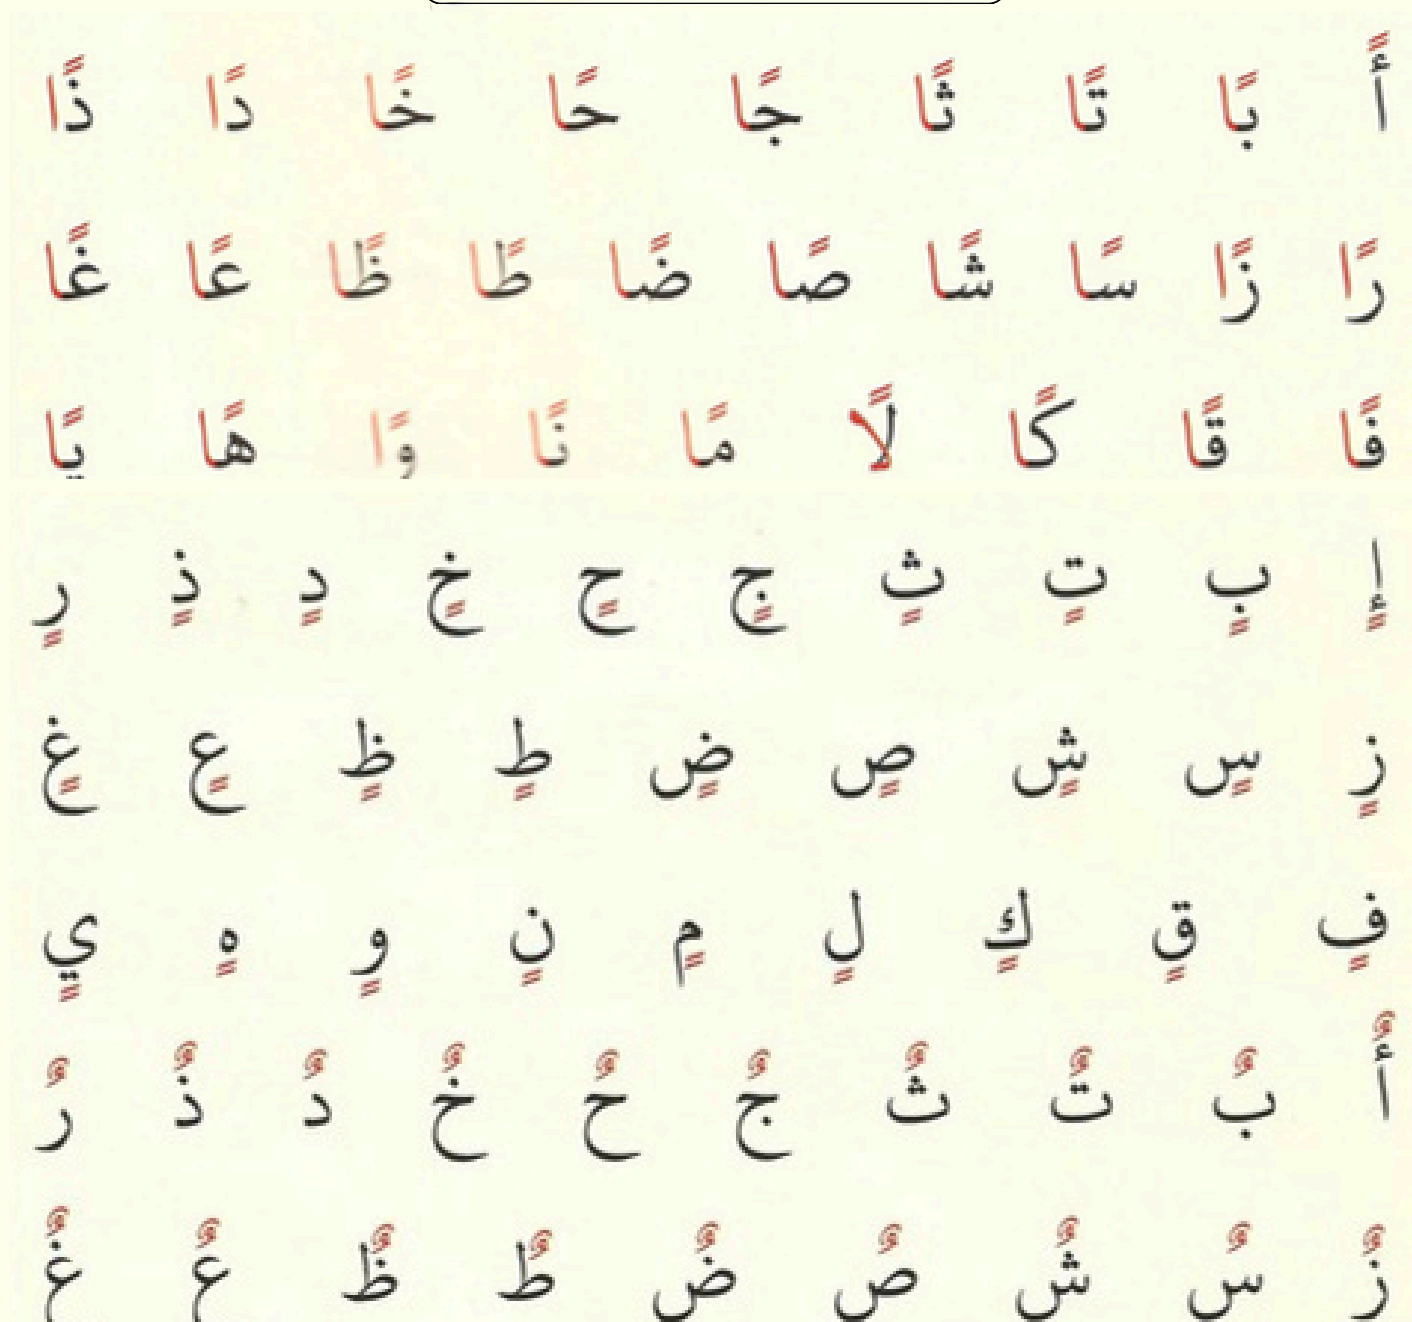 أً بًا تًا ثًا جًا حًا خًا دًا ذًا
رًا زًا سًا شًا صًا ضًا طًا ظًا عًا غًا
فًا قًا كًا لًا مًا نًا وًا هًا يًا
إٍ بٍ تٍ ثٍ جٍ حٍ خٍ دٍ ذٍ رٍ
زٍ سٍ شٍ صٍ ضٍ طٍ ظٍ عٍ غٍ
فٍ قٍ كٍ لٍ مٍ نٍ وٍ هٍ يٍ
أٌ بٌ تٌ ثٌ جٌ حٌ خٌ دٌ ذٌ رٌ
زٌ سٌ شٌ صٌ ضٌ طٌ ظٌ عٌ غٌ